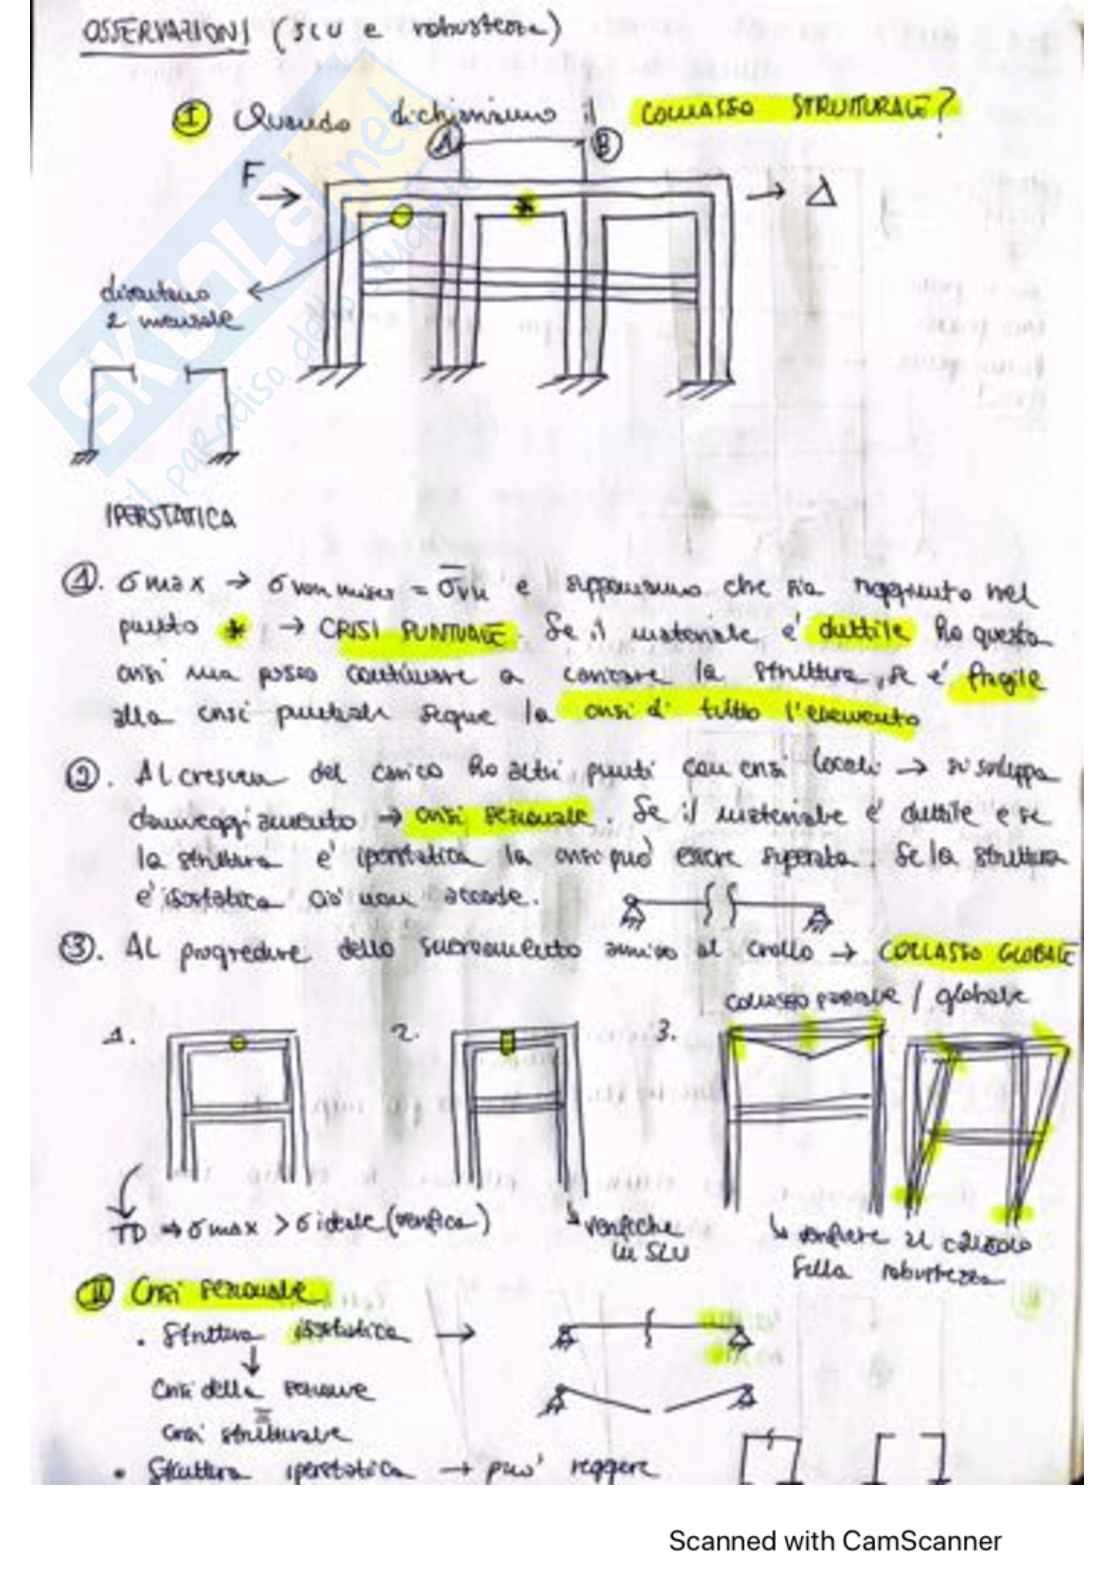 OSSERVAZIONI (SLU e robustezza)
I Quando dichiariamo il COLLASSO STRUTTURALE?
A B
F Δ
diventano
2 mensole
IPERSTATICA
1. σ max → σ von mises = e supponiamo che sia raggiunto nel
punto * → CRISI PUNTUALE. Se il materiale e' duttile ho questa
crisi ma posso continuare a caricare la struttura, se e' fragile
alla crisi puntuale segue la crisi di tutto l'elemento
2. Al crescere del carico ho altri punti con crisi locali → si sviluppa
danneggiamento → crisi sezionale. Se il materiale e' duttile e se
la struttura e' iperstatica la crisi può essere superata. Se la struttura
e' isostatica ciò non accade.
3. Al progredire dello snervamento arrivo al crollo → COLLASSO GLOBALE
collasso parziale / globale
1. 2. 3.
TD ⇒ σ max > σ ideale (verifica)
verifiche
in SLU
verifiche al collasso
sulla robustezza
II Crisi sezionale
• Struttura isostatica →
Crisi della sezione
=
crisi strutturale
• Struttura iperstatica → puo' reggere
SKUOLA.net
il paradiso dello studente
Scanned with CamScanner